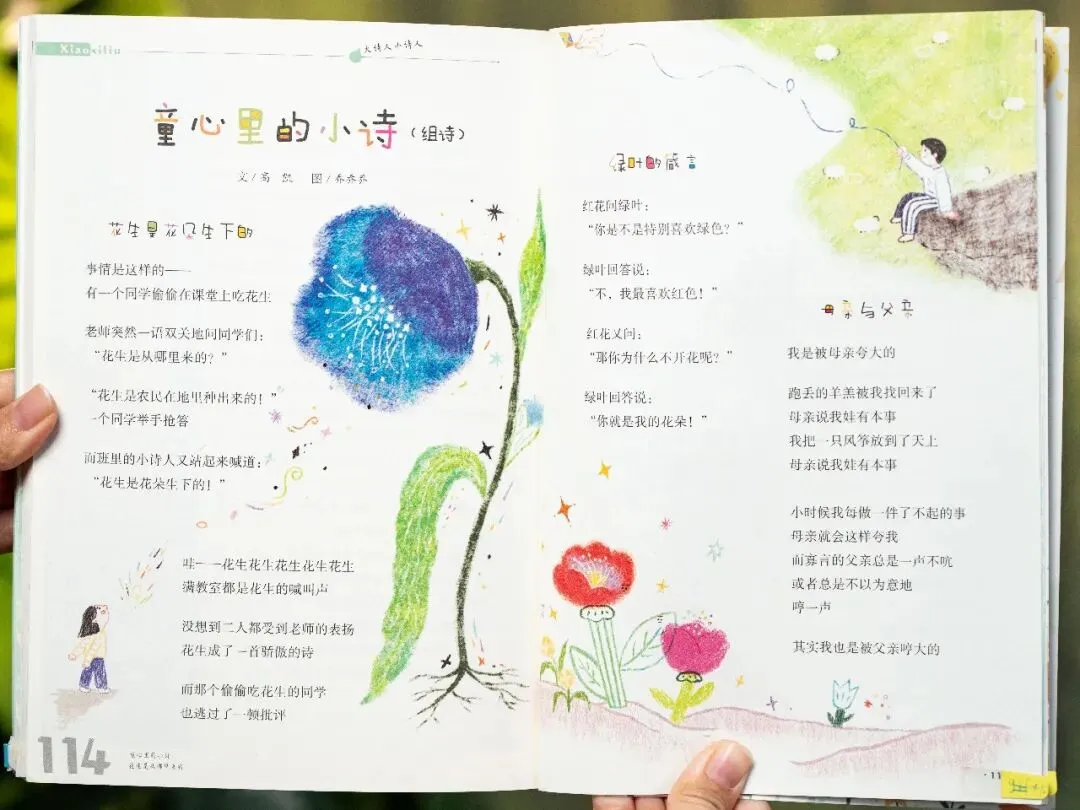 Xiaoxiliu
大诗人小诗人
童心里的小诗(组诗)
文/高 凯 图/乔乔乔
花生是花朵生下的
事情是这样的——
有一个同学偷偷在课堂上吃花生
老师突然一语双关地问同学们:
“花生是从哪里来的?”
“花生是农民在地里种出来的!”
一个同学举手抢答
而班里的小诗人又站起来喊道:
“花生是花朵生下的!”
哇——花生花生花生花生花生
满教室都是花生的喊叫声
没想到二人都受到老师的表扬
花生成了一首骄傲的诗
而那个偷偷吃花生的同学
也逃过了一顿批评
114
绿叶的感言
红花问绿叶:
“你是不是特别喜欢绿色?”
绿叶回答说:
“不,我最喜欢红色!”
红花又问:
“那你为什么不开花呢?”
绿叶回答说:
“你就是我的花朵!”
母亲与父亲
我是被母亲夸大的
跑丢的羊羔被我找回来了
母亲说我娃有本事
我把一只风筝放到了天上
母亲说我娃有本事
小时候我每做一件了不起的事
母亲就会这样夸我
而寡言的父亲总是一声不吭
或者总是不以为意地
哼一声
其实我也是被父亲哼大的